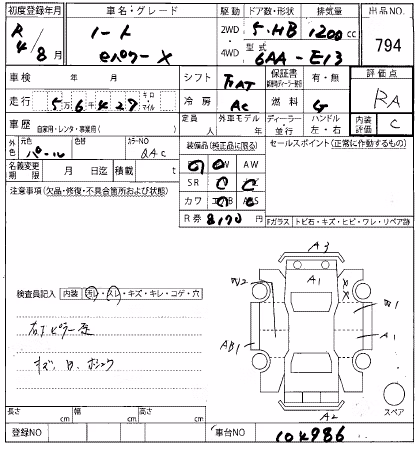 初度登録年月 車名・グレード 駆動 ドア数・形状 排気量 出品NO.
R 4/8月 ノート eパワー X 2WD・4WD 5・HB 1200cc 794
型式 6AA-E13
車検 年 月 シフト FAT 保証書 有・無 評価点 RA
走行 5万6千427 キロ マイル 冷房 AC 燃料 G
車歴 自家用・レンタ・事業用( ) 定員 人 外車モデル 年 ディーラー・並行 ハンドル 左・右 内装評価 C
外色 元色 パール 色 カラーNO QAC 装備品(純正品に限る) セールスポイント(正常に作動するもの)
名義変更期限 月 日迄 積載 t PW AW
注意事項(欠品・修復・不具合箇所および状態) SR
カワ
R券 8170 円 Fガラス トビ石・キズ・ヒビ・ワレ・リペア跡
A3
A1
W2 W1
検査員記入 内装 汚レ・スレ・キズ・キレ・コゲ・穴
AB1 A1
キズ、
スペア
A2
長さ cm 幅 cm 高さ cm
登録NO 車台NO 104986